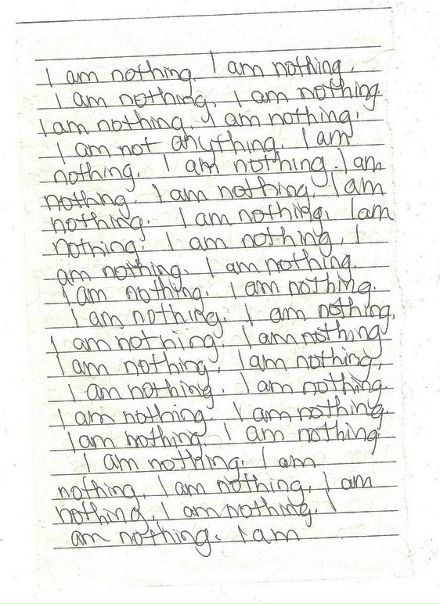 I am nothing. I am nothing.
I am nothing. I am nothing.
I am nothing. I am nothing.
I am not anything. I am
nothing. I am nothing. I am
nothing. I am nothing. I am
nothing. I am nothing. I am
nothing. I am nothing. I
am nothing. I am nothing.
I am nothing. I am nothing.
I am nothing. I am nothing.
I am nothing. I am nothing
I am nothing. I am nothing.
I am nothing. I am nothing.
I am nothing. I am nothing.
I am nothing. I am nothing.
I am nothing. I am
nothing. I am nothing. I am
nothing. I am nothing. I
am nothing. I am